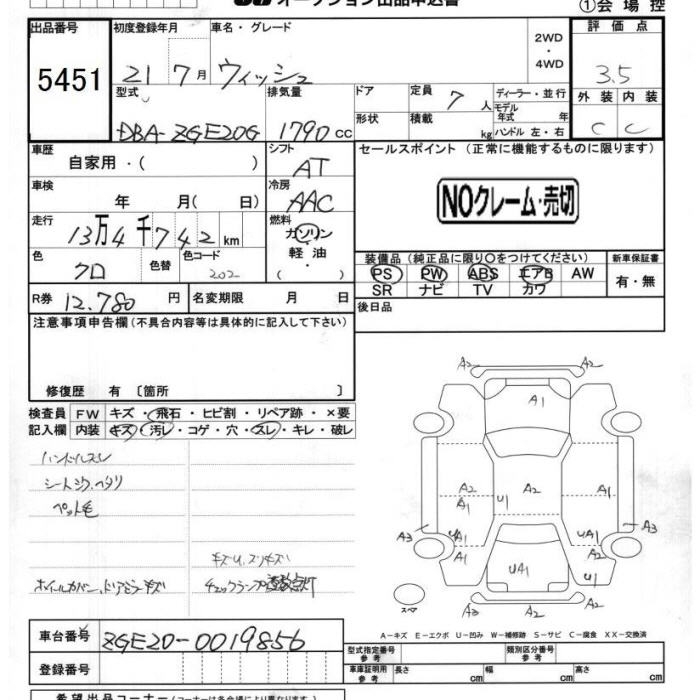 オークション出品申込書
①会場控
出品番号 初度登録年月 車名・グレード 評価点
5451 21 7月 ウィッシュ 2WD・4WD 3.5
型式 排気量 ドア 定員 7人 ディーラー・並行 外装 内装
DBA-ZGE20G 1790cc 形状 積載 kg モデル年式 年 ハンドル 左・右 C C
車歴 シフト セールスポイント (正常に機能するものに限ります)
自家用・( ) AT
車検 年 月( 日) 冷房 AAC NOクレーム・売切
走行 13万4千742km 燃料 ガソリン
軽油・( )
色 クロ 色替 色コード 202
装備品 (純正品に限り○をつけてください) 新車保証書
PS PW ABS エアB AW 有・無
SR ナビ TV カワ
R券 12,780円 名変期限 月 日 後日品
注意事項申告欄 (不具合内容等は具体的に記入して下さい)
修復歴 有 〔箇所 〕
検査員 FW キズ・飛石・ヒビ割・リペア跡・×要
記入欄 内装 キズ・汚レ・コゲ・穴・スレ・キレ・破レ
ハンドルスレ
シートシワ、ヘタリ
ペット毛
キズU、スリキズ
ホイルカバー、ドアミラーキズ チェックランプ
A2 A2
A1
A2 A1 U1 A2 A1
A3 UA1 A1 UA1 A3
UA1 U1
スペア A3 A2
A-キズ E-エクボ U-凹み W-補修跡 S-サビ C-腐食 XX-交換済
車台番号 ZGE20-0019856
型式指定番号 参考 類別区分番号 参考
登録番号 車庫証明用 参考 長さ cm 幅 cm 高さ cm
希望出品コーナー (コーナーは各会場により異なります。)